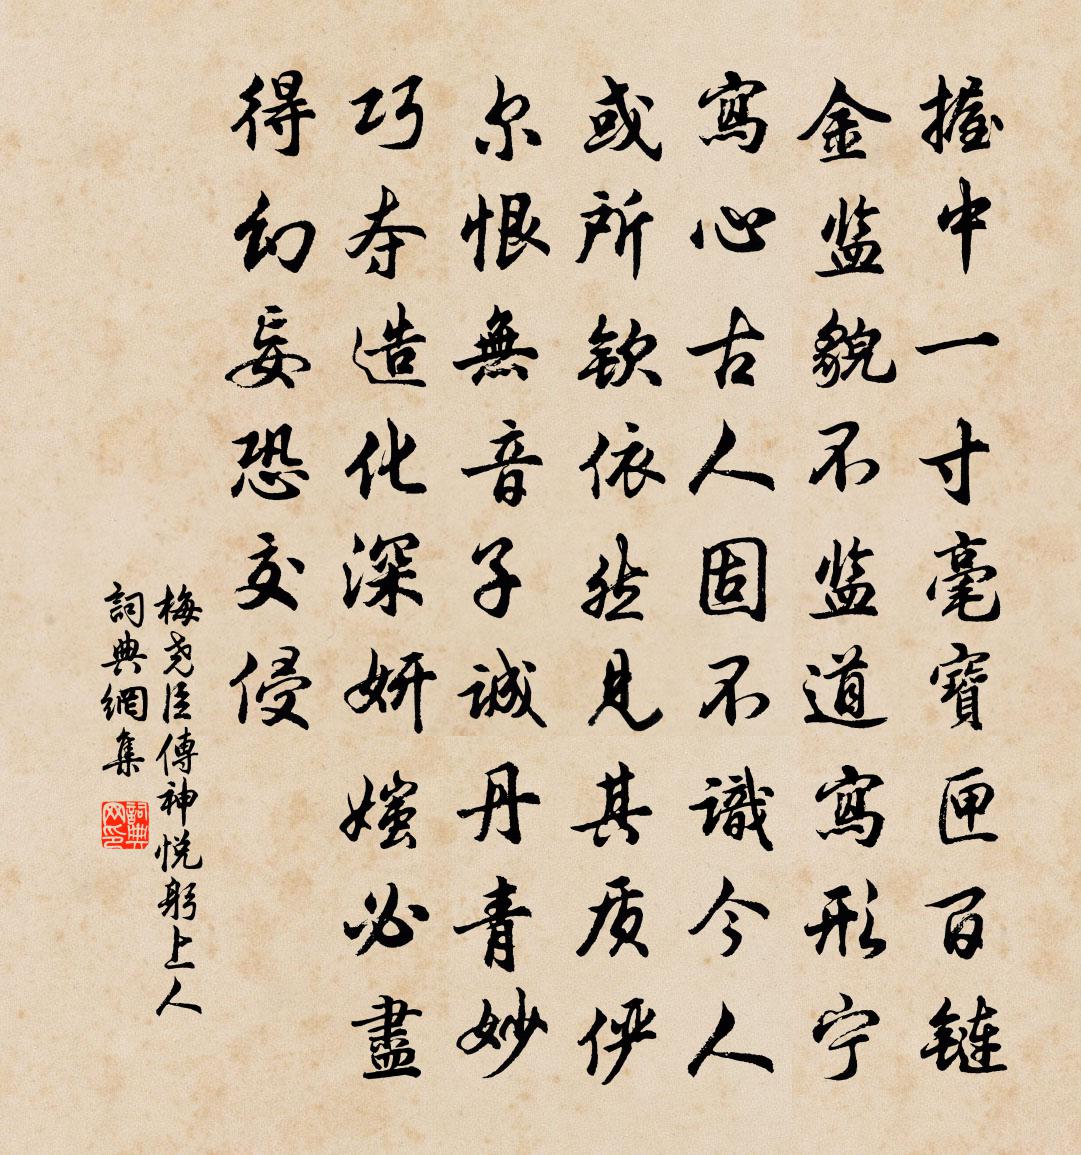 握中一寸毫寶匣百鏈
金监貌不监道寫形宁
寫心古人固不識今人
或所欽依然見其质俨
尔恨無音子誠丹青妙
巧夺造化深妍媸必盡
得幻妄恐交侵
梅尧臣傳神悦躬上人
詞典網集
詞典网印